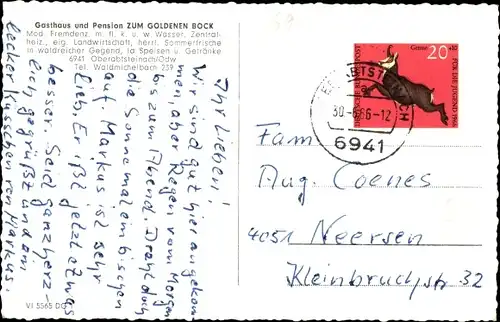 Gasthaus und Pension ZUM GOLDENEN BOCK
Mod. Fremdenz. m. fl. k. u. w. Wasser, Zentral-
heiz., eig. Landwirtschaft, herrl. Sommerfrische
in waldreicher Gegend, la Speisen u. Getränke
6941 Oberabtsteinach/Odw
Tel. Waldmichelbach 239
Ihr Lieben!
Wir sind gut hier angekom-
men, aber Regen vom Morgen
bis zum Abend. Draht doch
die Sonne mal ein bischen
auf. Markus ist sehr
lieb. Er ißt jetzt etwas
besser. Seid ganz herz-
lich gegrüßt und ein
lecker Küsschen von Markus.
VI 5565 DG
20+10
Gemse
FÜR DIE JUGEND 1966
DEUTSCHE BUNDESPOST
30.-6.66-12
6941
Fam
Aug. Coenes
4051 Neersen
Kleinbruchstr 32